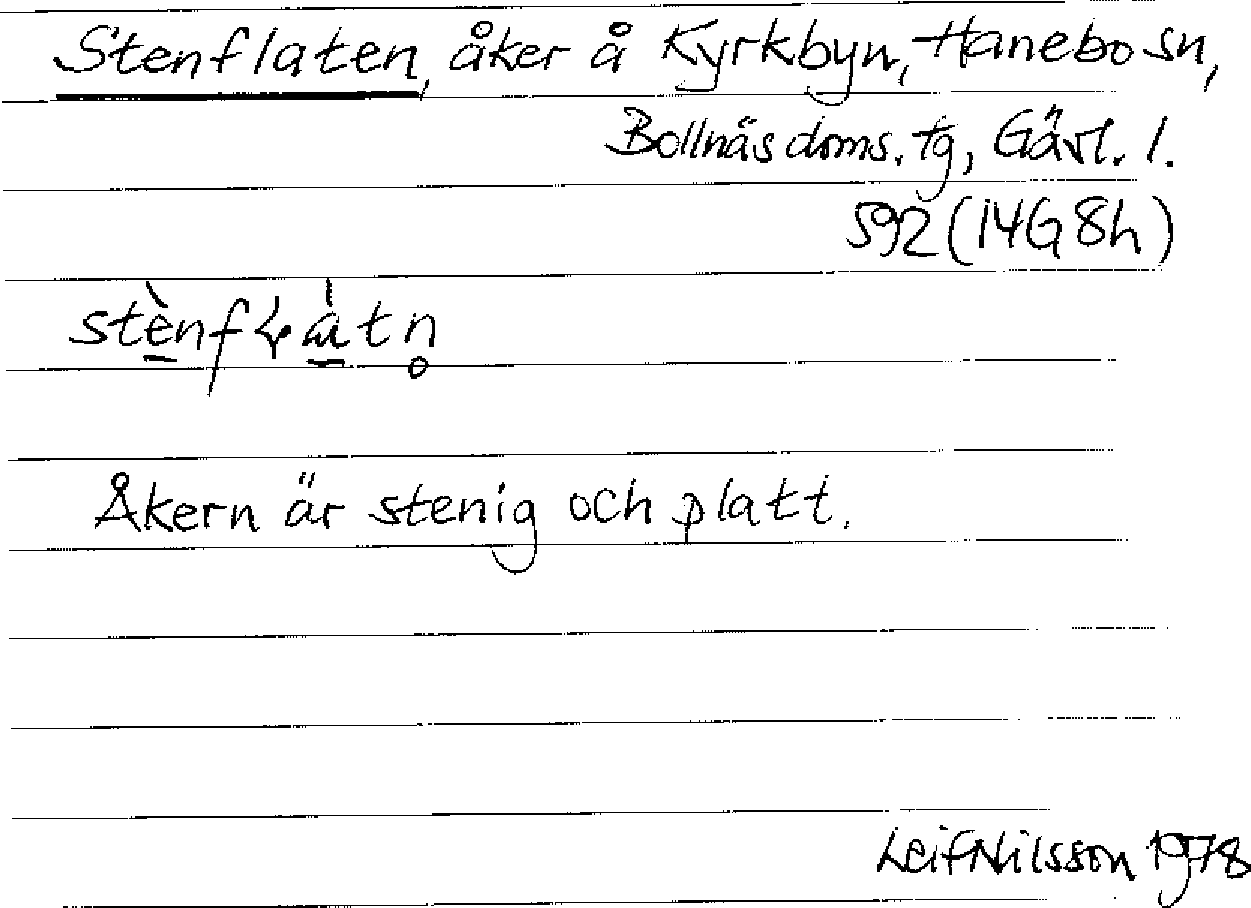 Stenflaten, åker å Kyrkbyn, Hanebo sn,
Bollnäs doms. tg, Gävl. l.
S92 (14G8h)
Åkern är stenig och platt.
Leif Nilsson 1978